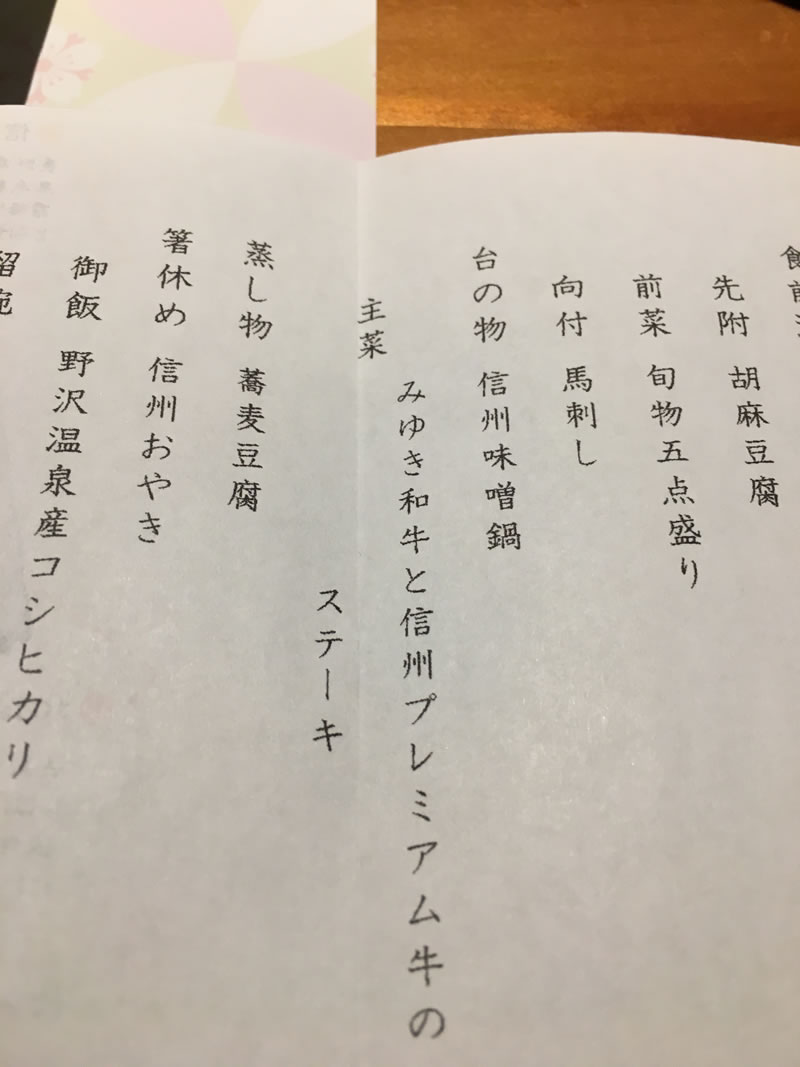 先附 胡麻豆腐
前菜 旬物五点盛り
向付 馬刺し
台の物 信州味噌鍋
主菜
みゆき和牛と信州プレミアム牛の
ステーキ
蒸し物 蕎麦豆腐
箸休め 信州おやき
御飯 野沢温泉産コシヒカリ